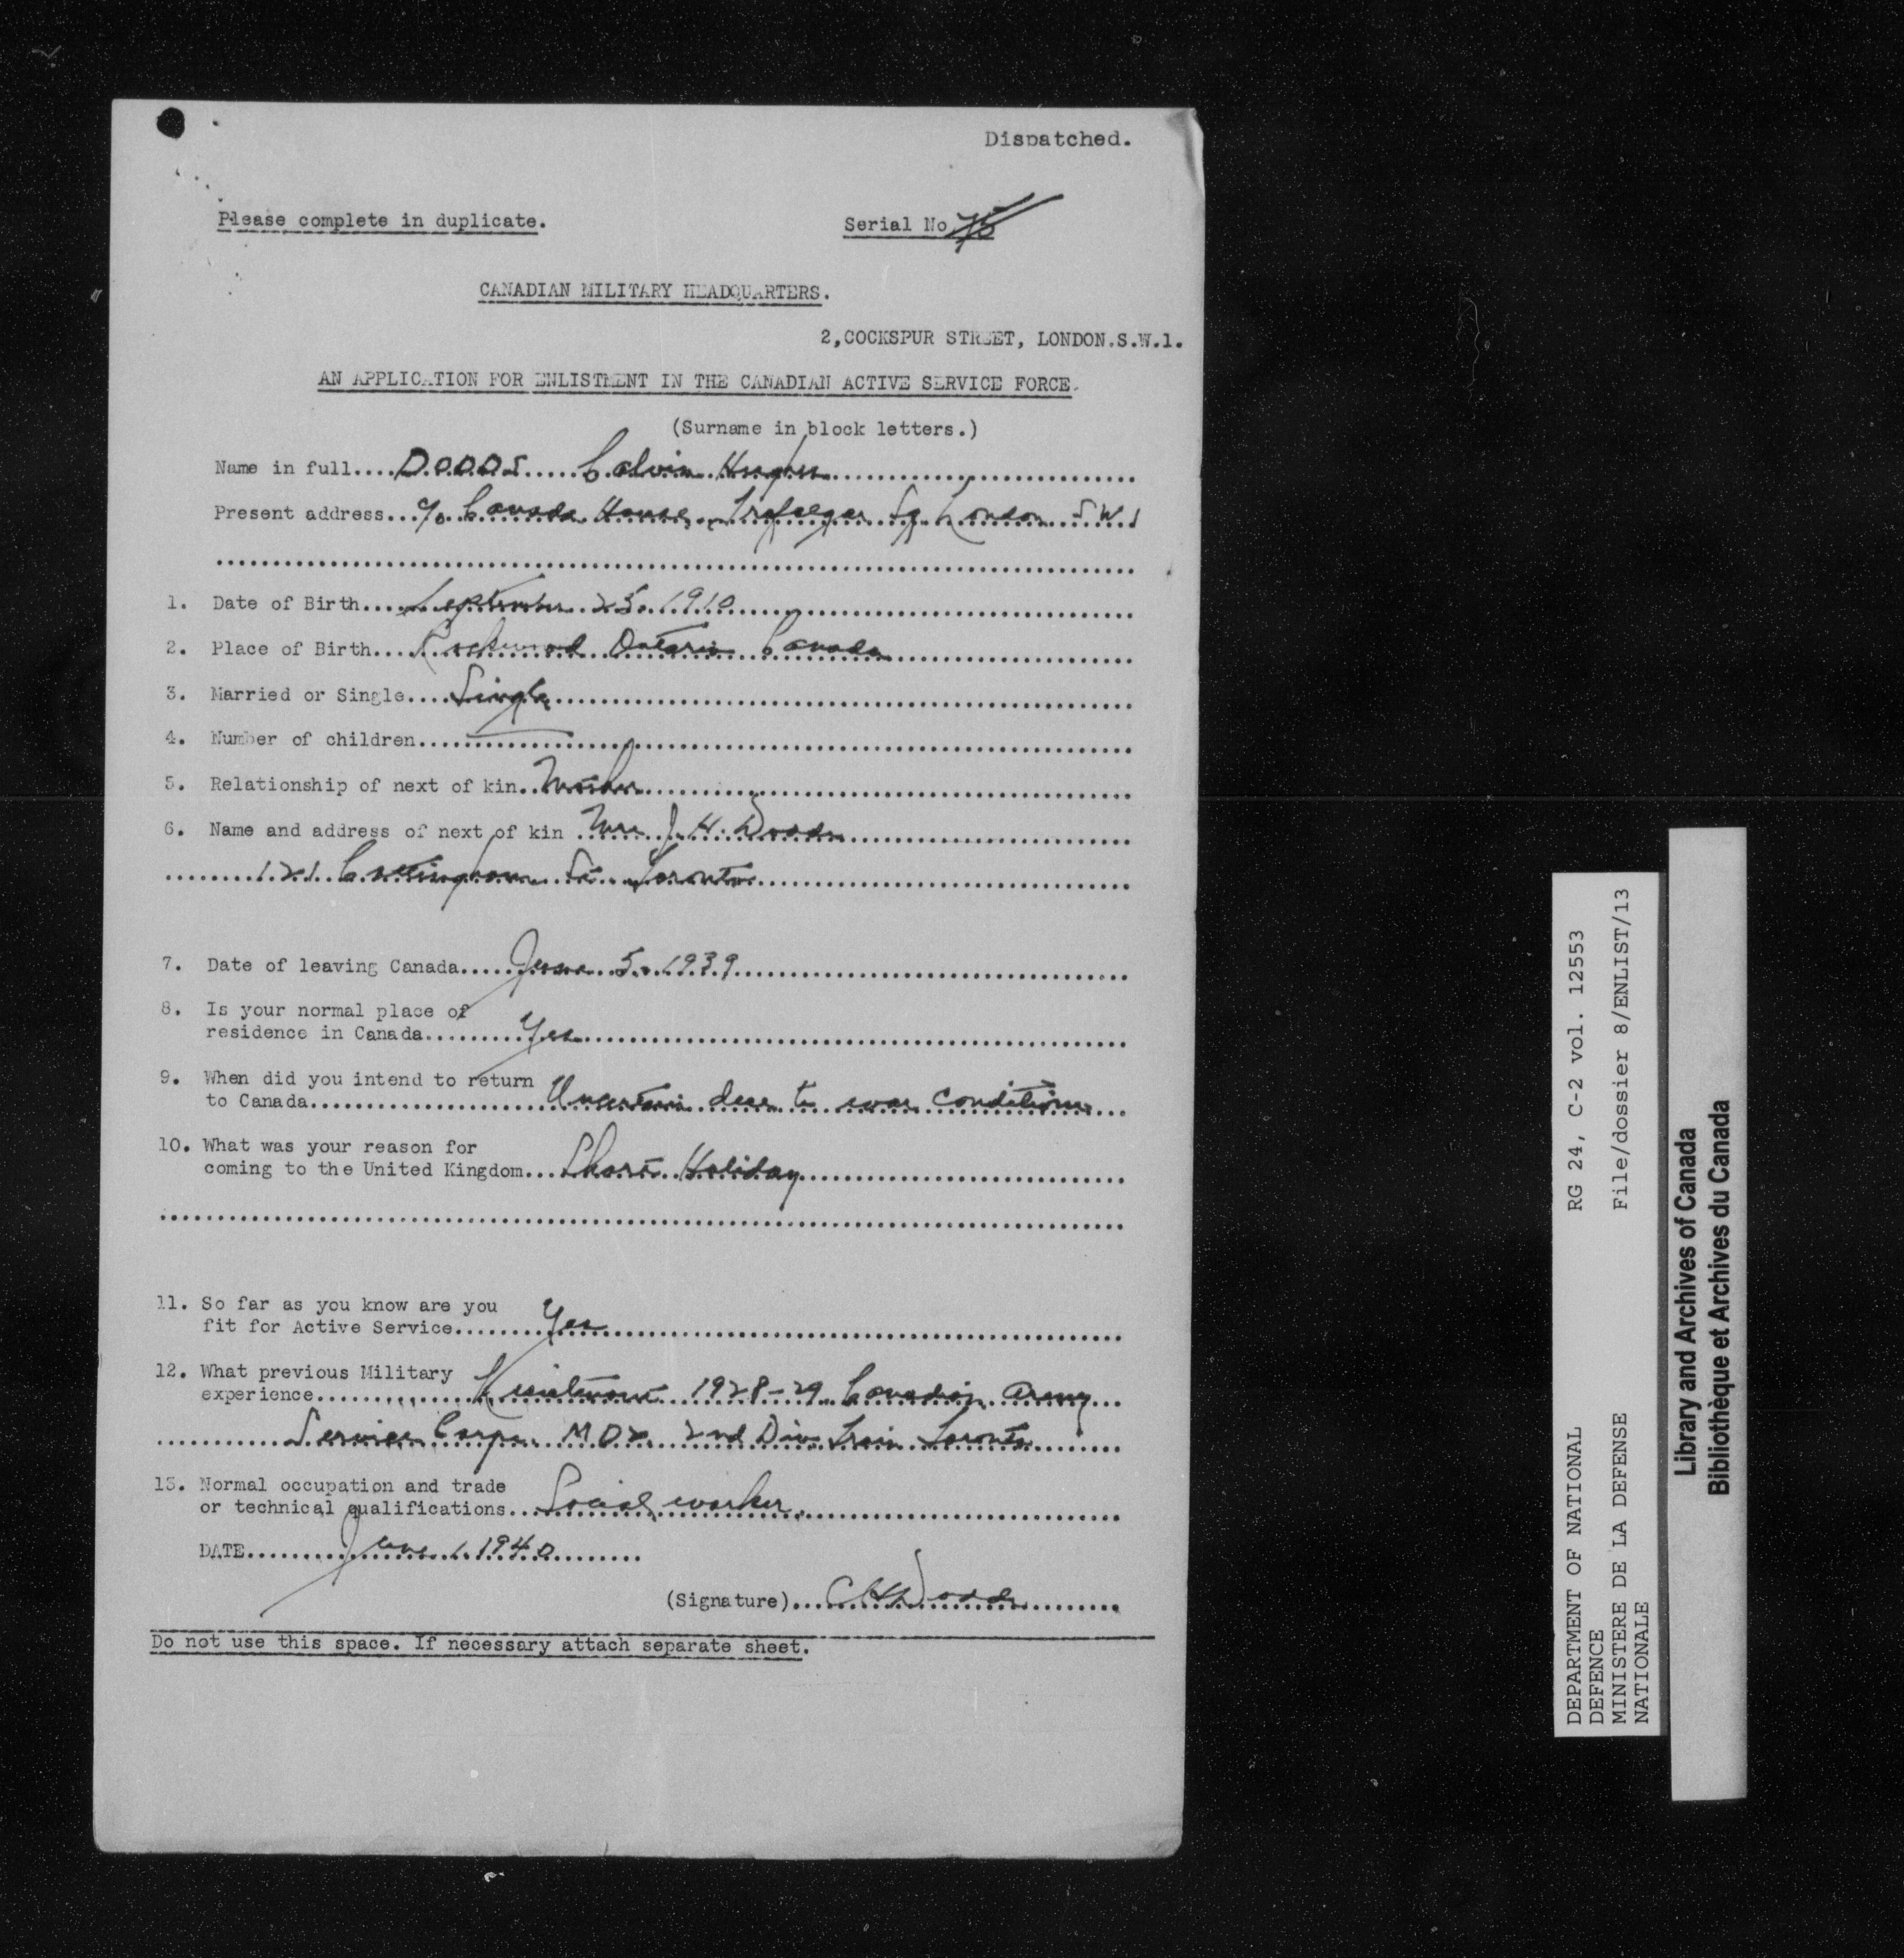 Dispatched.
Please complete in duplicate.
Serial No. 75
CANADIAN MILITARY HEADQUARTERS.
2,COCKSPUR STREET, LONDON.S.W.1.
AN APPLICATION FOR ENLISTMENT IN THE CANADIAN ACTIVE SERVICE FORCE.
(Surname in block letters.)
Name in full....DODDS.....Calvin Hughes
Present address...c/o Canada House, Trafalgar Sq London S W 1
1. Date of Birth....September 25. 1910
2. Place of Birth....Rockwood Ontario Canada
3. Married or Single....Single
4. Number of children....—
5. Relationship of next of kin..Mother
6. Name and address of next of kin ..Mrs J. H. Dodds
121 Cottingham St Toronto
7. Date of leaving Canada.....June 5. 1939
8. Is your normal place of
residence in Canada........Yes
9. When did you intend to return
to Canada....................Uncertain due to war conditions
10. What was your reason for
coming to the United Kingdom...Short Holiday
11. So far as you know are you
fit for Active Service.......Yes
12. What previous Military
experience............. 1928-29 Canadian Army
Service Corps M D 2 2nd Div Train Toronto
13. Normal occupation and trade
or technical qualifications...Social worker.
DATE.........June 1. 1940
(Signature)....C H Dodds
Do not use this space. If necessary attach separate sheet.
DEPARTMENT OF NATIONAL
DEFENCE
MINISTERE DE LA DEFENSE
NATIONALE
RG 24, C-2 vol. 12553
File/dossier 8/ENLIST/13
Library and Archives of Canada
Bibliothèque et Archives du Canada